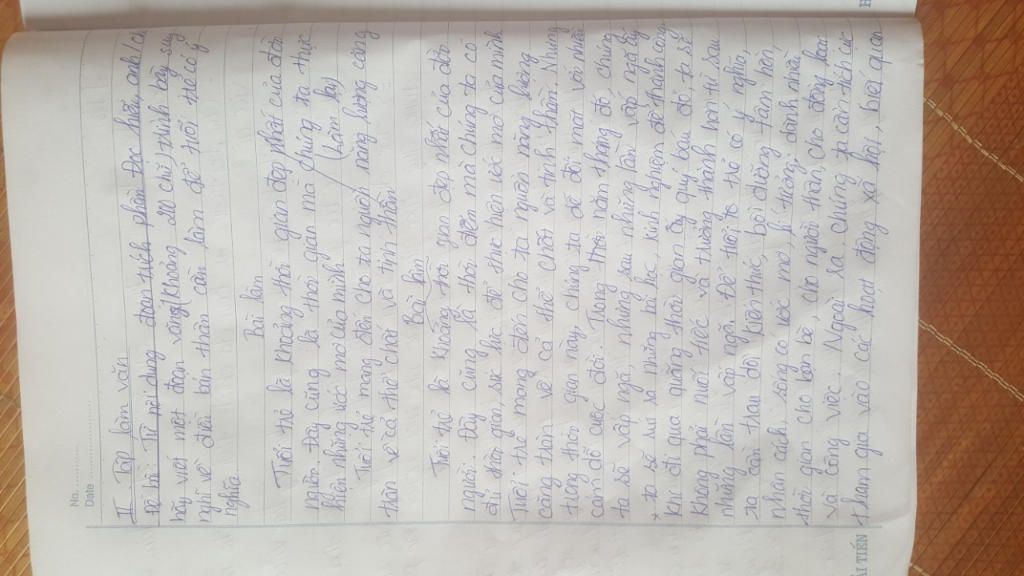 No.
Date
II Tập làm văn
Đề bài: Từ nội dung đoạn trích phần đọc hiểu, anh/chị
hãy viết một đoạn văn (khoảng 20 chữ) trình bày suy
nghĩ về điều bản thân cần làm để tuổi trẻ có ý
nghĩa.
Bài làm
Tuổi trẻ là khoảng thời gian đẹp nhất của đời
người. Đây cũng là thời gian mà chúng ta thực
hiện những ước mơ của mình (Làm lại)
Tuổi trẻ mang đến cho ta nguồn năng lượng căng
tràn về cả thể chất và tinh thần
Bài làm
Tuổi trẻ là khoảng thời gian đẹp nhất của đời
người. Đây cũng là thời điểm mà chúng ta có
đủ thời gian, sức lực để thực hiện ước mơ của mình
Tuổi trẻ mang đến cho ta nguồn năng lượng
căng tràn về cả thể chất và tinh thần. Nhưng
trong thời gian này, chúng ta dễ đối mặt với nhiều
cám dỗ cuộc đời. Trong thời nan đó, chúng
ta sẽ vấp ngã, nhưng sau những lần vấp ngã ấy
ta sẽ rút ra những bài học, kinh nghiệm để thành công.
Khi đi qua quãng thời gian ấy quý báu đó, ta sẽ
không phải nuối tiếc và trưởng thành hơn từ sau
những lần vấp ngã. Để tuổi trẻ có ý nghĩa,
ta cần trau dồi kiến thức, bồi dưỡng tâm hồn,
nhân cách, sống có ước mơ, lí tưởng, dành nhiều
thời gian cho bạn bè, cho người thân, cho đồng loại
và công việc. Ngoài ra, chúng ta cần tích cực
tham gia vào các hoạt động xã hội, biết quan
ẢI TIẾN
H